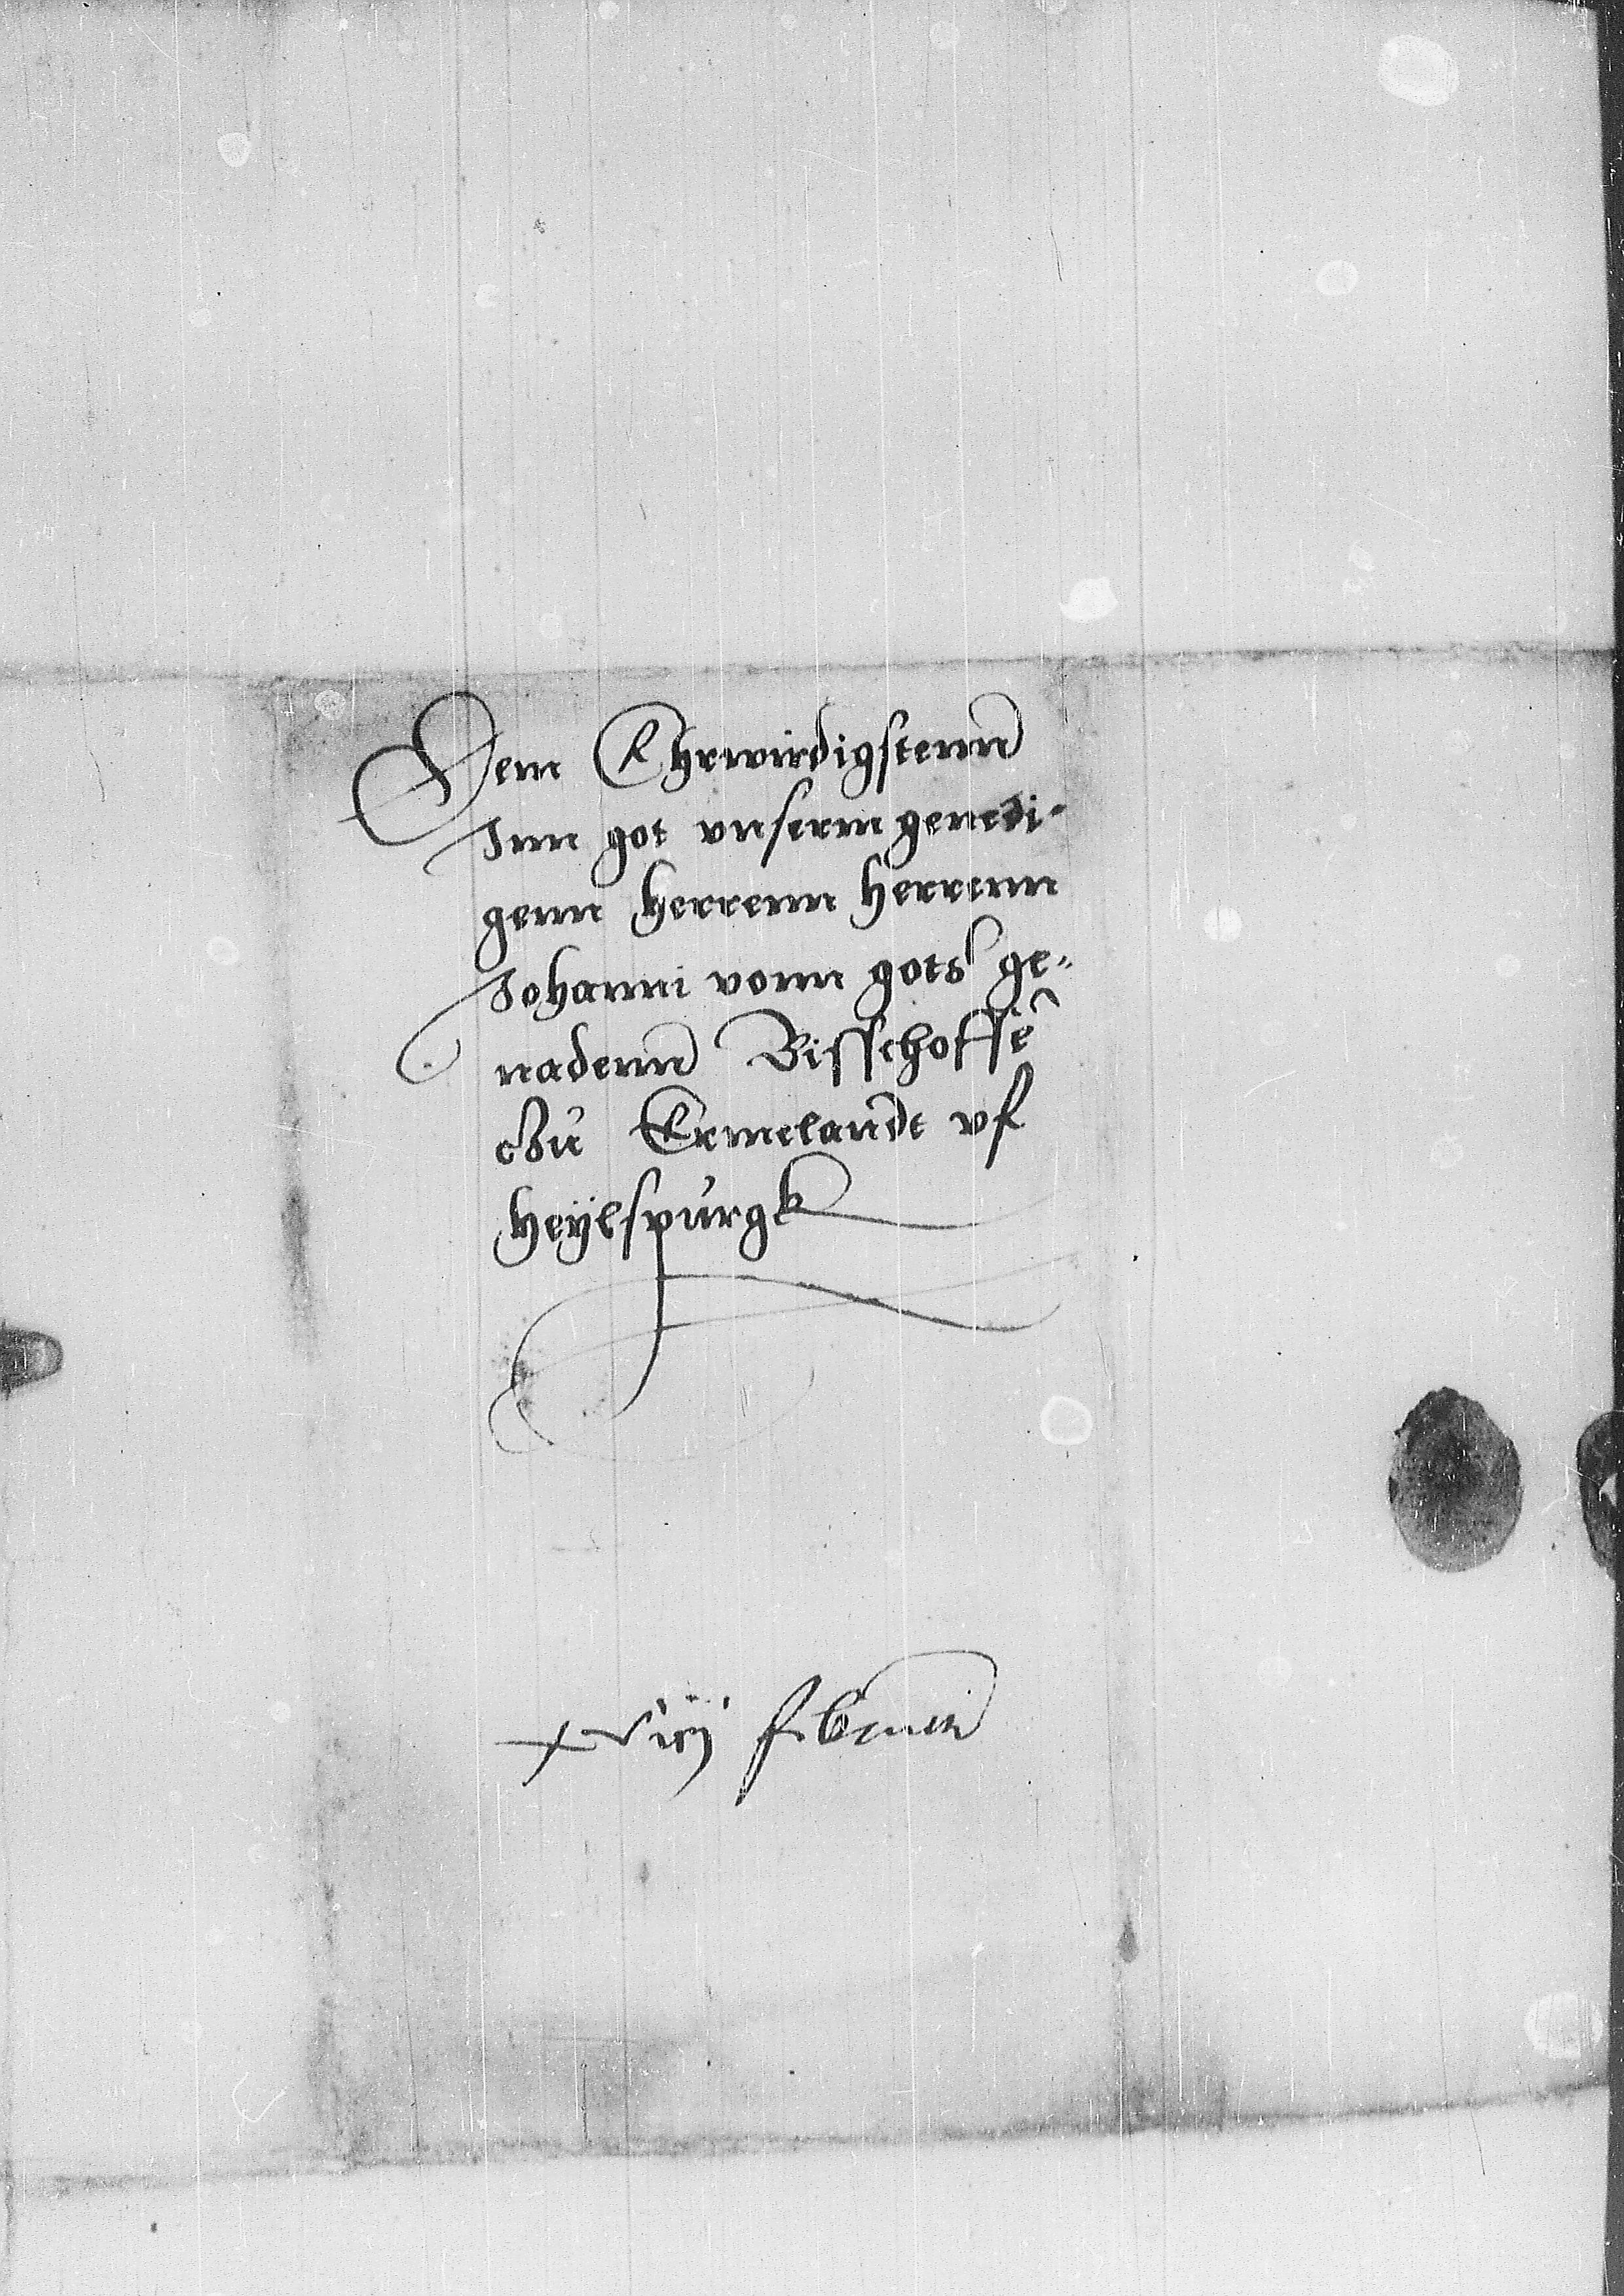 Dem Ehrwirdigstenn
Inn got vnserm genedi-
genn herrenn herrenn
Johanni vonn gots ge-
nadenn Bisschoffē
czu Ermelandt vf
heÿlspurgk
xviij februarij